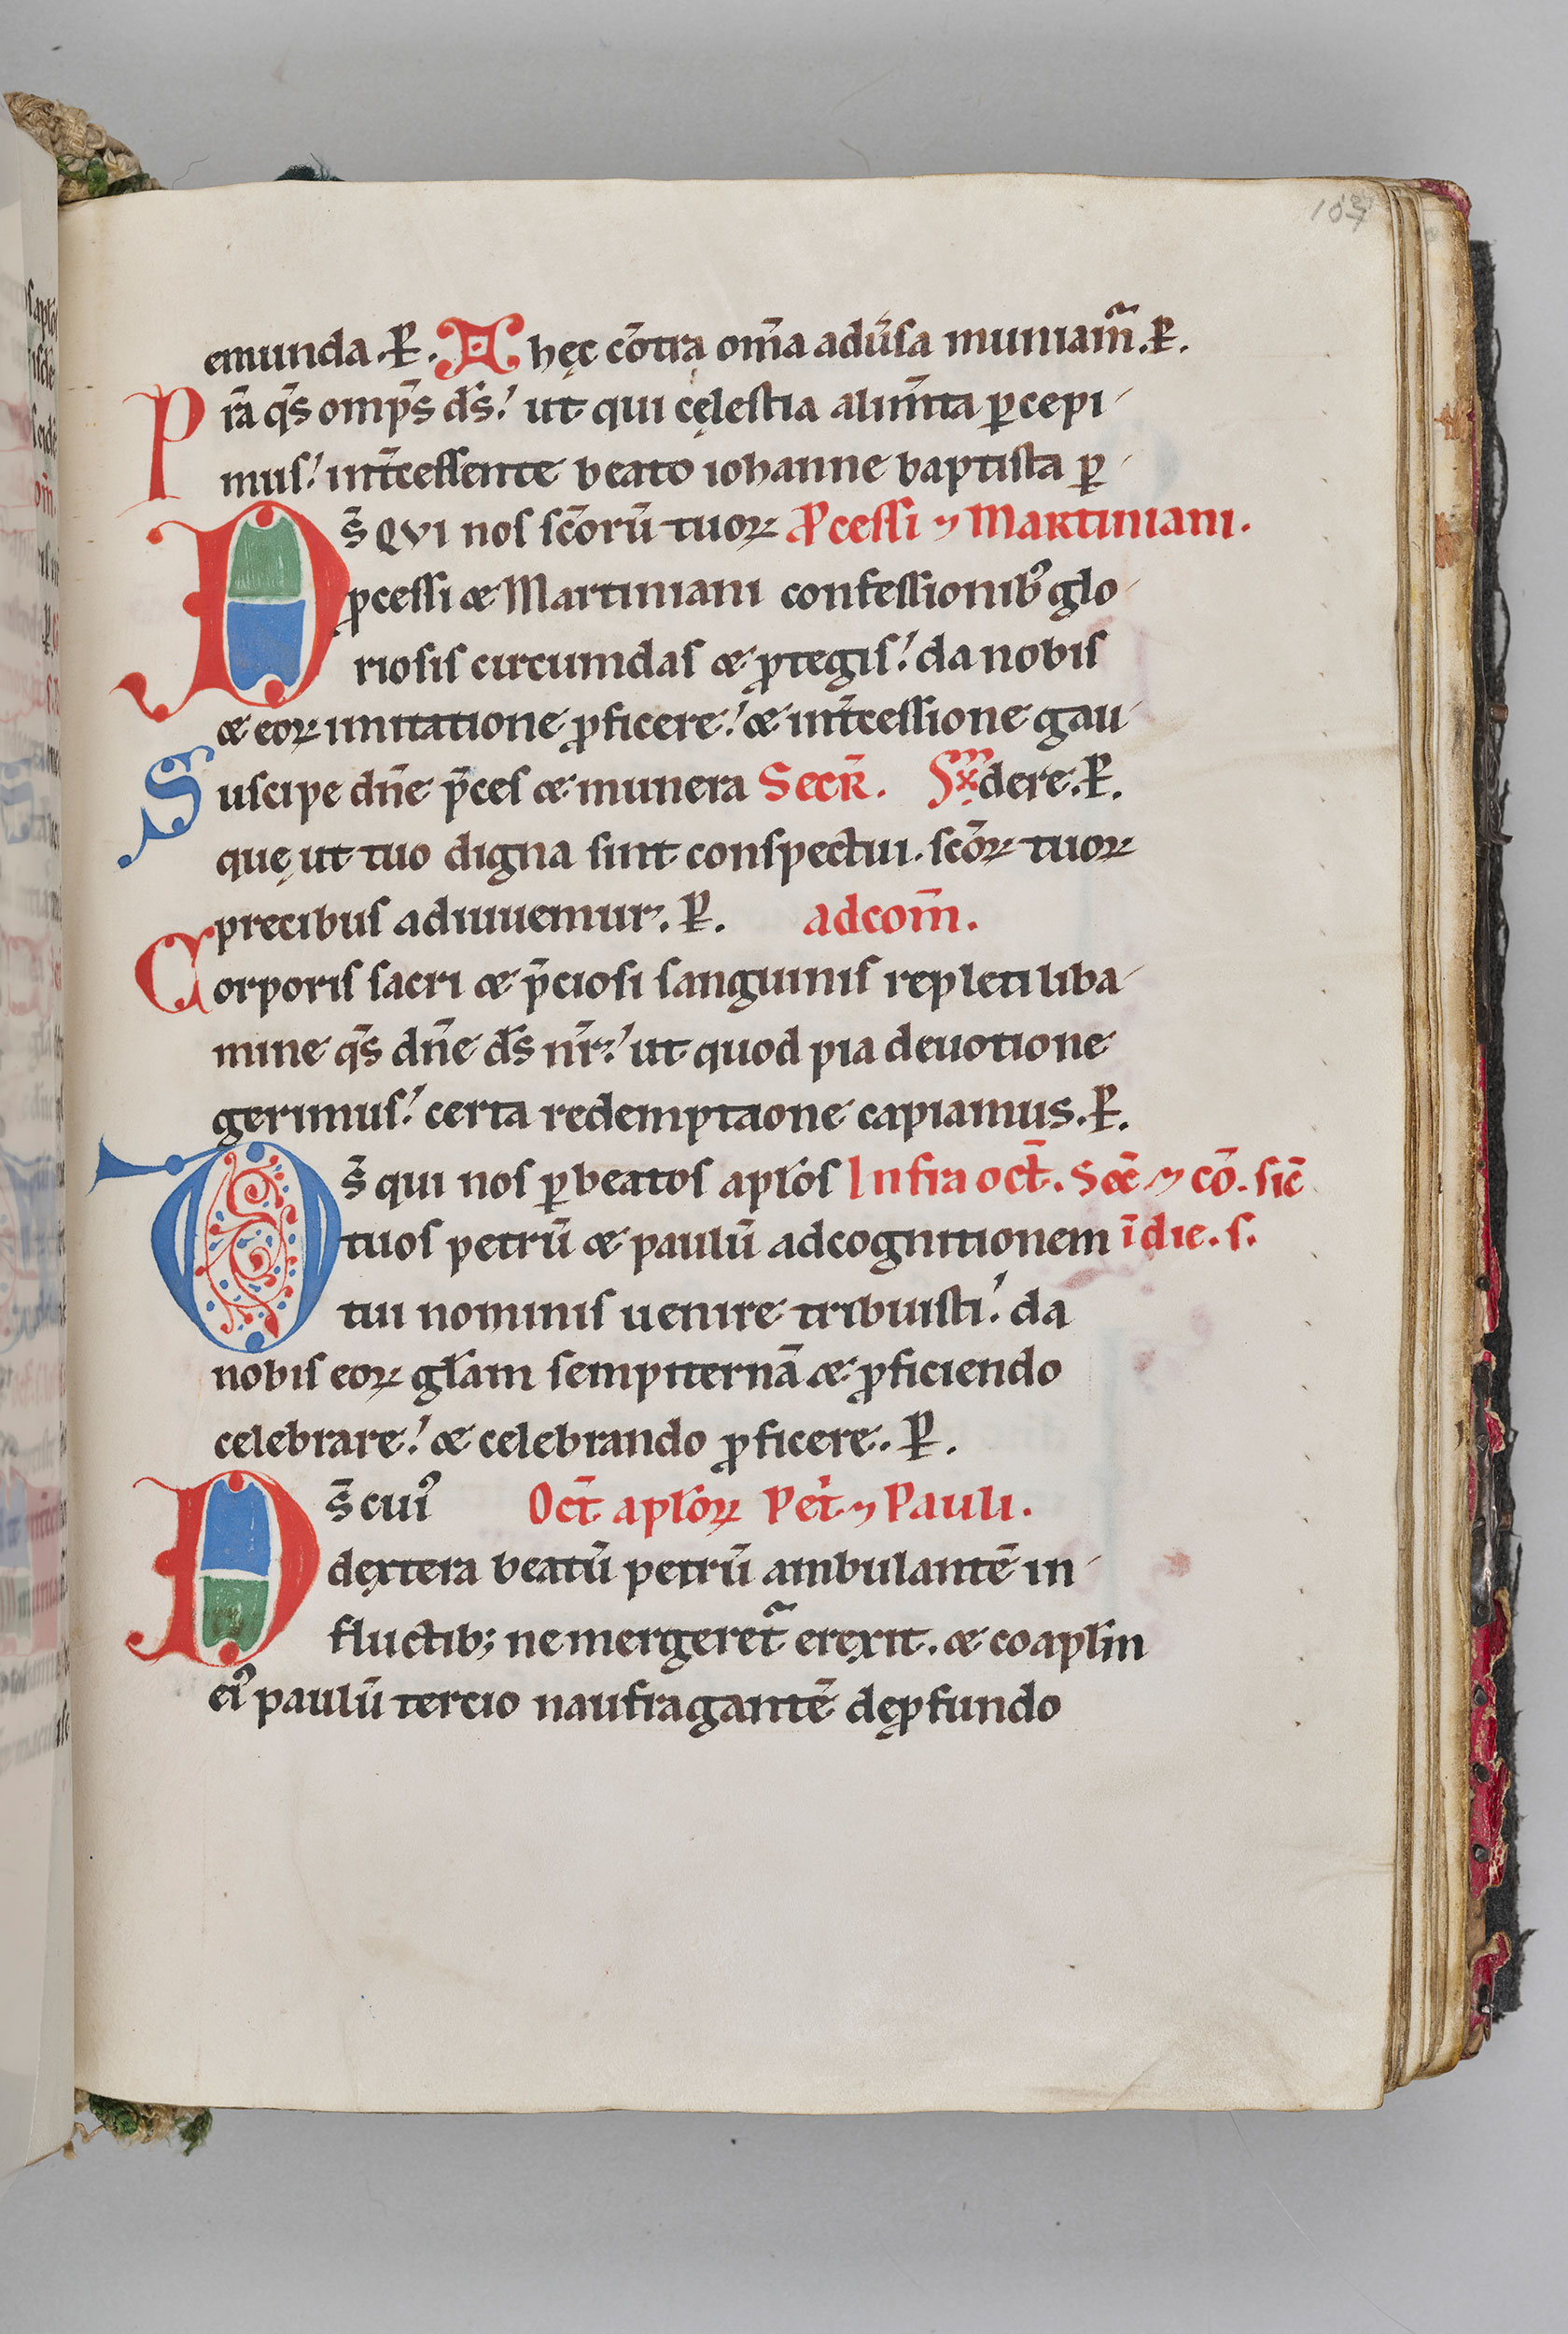 107
emunda. P̵. A hęc cōtra om̄a adūsa muniam̄. P̵.
Pr̄a qs̄ omp̄s ds̄! ut qui cęlestia alim̄ta ꝑcepi
mus! int̄cessente beato iohanne baptista ꝑ
Ds̄ QVI nos sc̄orū tuoꝝ Ꝓcessi ⁊ Martiniani.
ꝓcessi & Martiniani confessionibꝰ glo
riosis circumdas & ꝓtegis! da nobis
& eoꝝ imitatione ꝓficere! & int̄cessione gau
Suscipe dn̄e p̄ces & munera Secr̄. dere. P̵.
quę ut tuo digna sint conspectui. sc̄oꝝ tuoꝝ
precibus adiuuemur. P̵. adcom̄.
Corporis sacri & p̄ciosi sanguinis repleti liba
mine qs̄ dn̄e ds̄ nr̄! ut quod pia deuotione
gerimus! certa redemptaone capiamus. P̵.
Ds̄ qui nos ꝑ beatos apl̄os Infra oct̄. Sec̄ ⁊ cō. sic̄
tuos petrū & paulū adcognitionem ī die. s.
tui nominis uenire tribuisti! da
nobis eoꝝ gl̄am sempiternā & ꝓficiendo
celebrare! & celebrando ꝓficere. P̵.
Ds̄ cuiꝰ Oct̄ apl̄oꝝ Pet̄ ⁊ Pauli.
dextera beatū petrū ambulantē in
fluctib; ne mergeret᷑ erexit. & coapl̄m
eiꝰ paulū tercio naufragantē de ꝓfundo